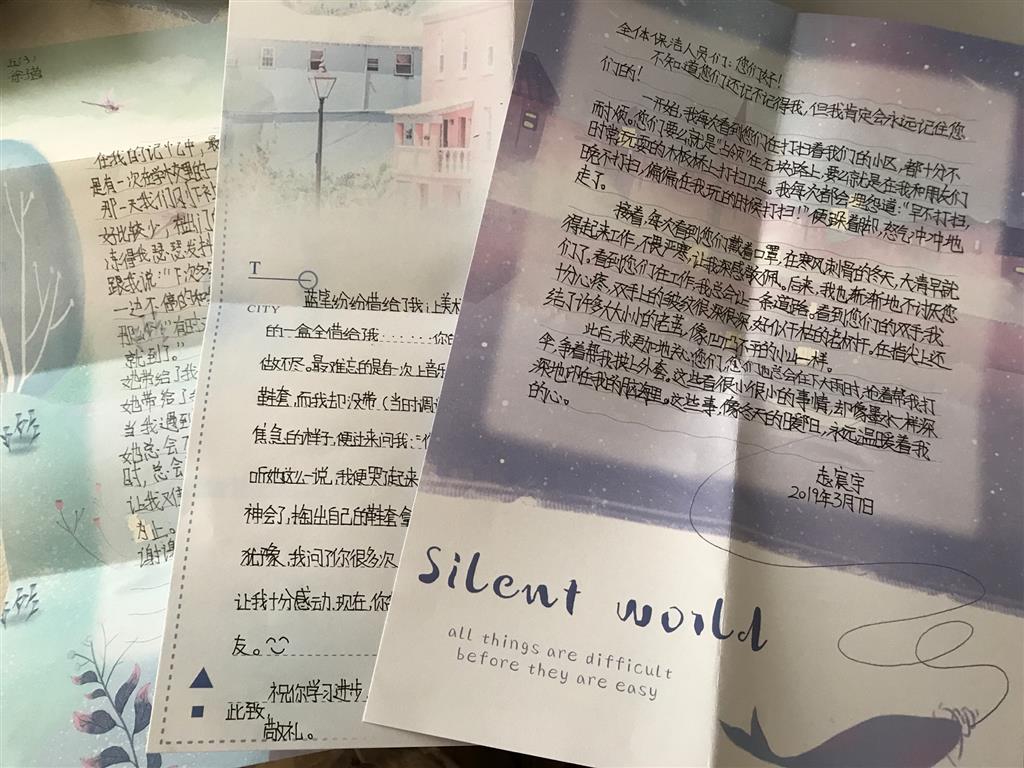 五(3)
在我的记忆中，最
是有一次在学校里的一
那一天我们风
好比较少，一出门
冻得我瑟瑟发抖
跟我说："下次多
一边不停的
就到了。"
她带给了我
她带给了
当我遇到
她总会了
时，总会
让我对
为止。
谢谢
T
CITY
蓝笔纷纷借给我让美术
的一盒全借给我......你的
做不尽。最难忘的是有一次上音乐
鞋套，而我却没带（当时调
焦急的样子，便过来问我：
听她这么一说，我便哭了起来
神会了，掏出自己的鞋套拿
犹豫，我问了你很多次
让我十分感动，现在，你
友。
祝你学习进步
此致
敬礼。
全体保洁人员们：您们好！
不知道您们还记不记得我，但我肯定会永远记住您
们的！
一开始，我每次看到您们在打扫着我们的小区，都十分不
耐烦。您们要么就是"占领"住石块路上，要么就是在我和朋友们
时常玩耍的木板林上打扫卫生。我每次都会埋怨道："早不打扫，
晚不打扫，偏偏在我玩的时候打扫！"便跺着脚，怒气冲冲地
走了。
接着，每次看到您们戴着口罩，在寒风刺骨的冬天，大清早就
得起来工作，不畏严寒，让我深感敬佩。后来，我也渐渐地不讨厌您
们了，看到您们在工作，我总会让一条道路。看到您们的双手，我
十分心疼，双手上的皱纹很深很深，如似干枯的老树干，在指尖上还
结了许多大大小小的老茧，像凹凸不平的小山一样。
此后，我更加地关心您们，您们也总会在下大雨时，抢着帮我打
伞，争着帮我披上外套。这些看很小很小的事情，却像墨水一样深
深地印在我的脑海里。这些事，像冬天的暖阳，永远温暖着我
的心。
赵宸宇
2019年3月7日
silent world
all things are difficult
before they are easy